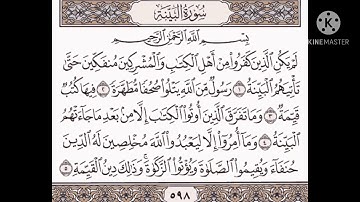 سُورَةُ البَيِّنَةِ
بِسْمِ ٱللَّهِ ٱلرَّحْمَٰنِ ٱلرَّحِيمِ
لَمْ يَكُنِ ٱلَّذِينَ كَفَرُوا۟ مِنْ أَهْلِ ٱلْكِتَٰبِ وَٱلْمُشْرِكِينَ مُنفَكِّينَ حَتَّىٰ
تَأْتِيَهُمُ ٱلْبَيِّنَةُ ١ رَسُولٌ مِّنَ ٱللَّهِ يَتْلُوا۟ صُحُفًا مُّطَهَّرَةً ٢ فِيهَا كُتُبٌ
قَيِّمَةٌ ٣ وَمَا تَفَرَّقَ ٱلَّذِينَ أُوتُوا۟ ٱلْكِتَٰبَ إِلَّا مِنۢ بَعْدِ مَا جَآءَتْهُمُ
ٱلْبَيِّنَةُ ٤ وَمَآ أُمِرُوٓا۟ إِلَّا لِيَعْبُدُوا۟ ٱللَّهَ مُخْلِصِينَ لَهُ ٱلدِّينَ
حُنَفَآءَ وَيُقِيمُوا۟ ٱلصَّلَوٰةَ وَيُؤْتُوا۟ ٱلزَّكَوٰةَ وَذَٰلِكَ دِينُ ٱلْقَيِّمَةِ ٥
٥٩٨
Made with
KINEMASTER